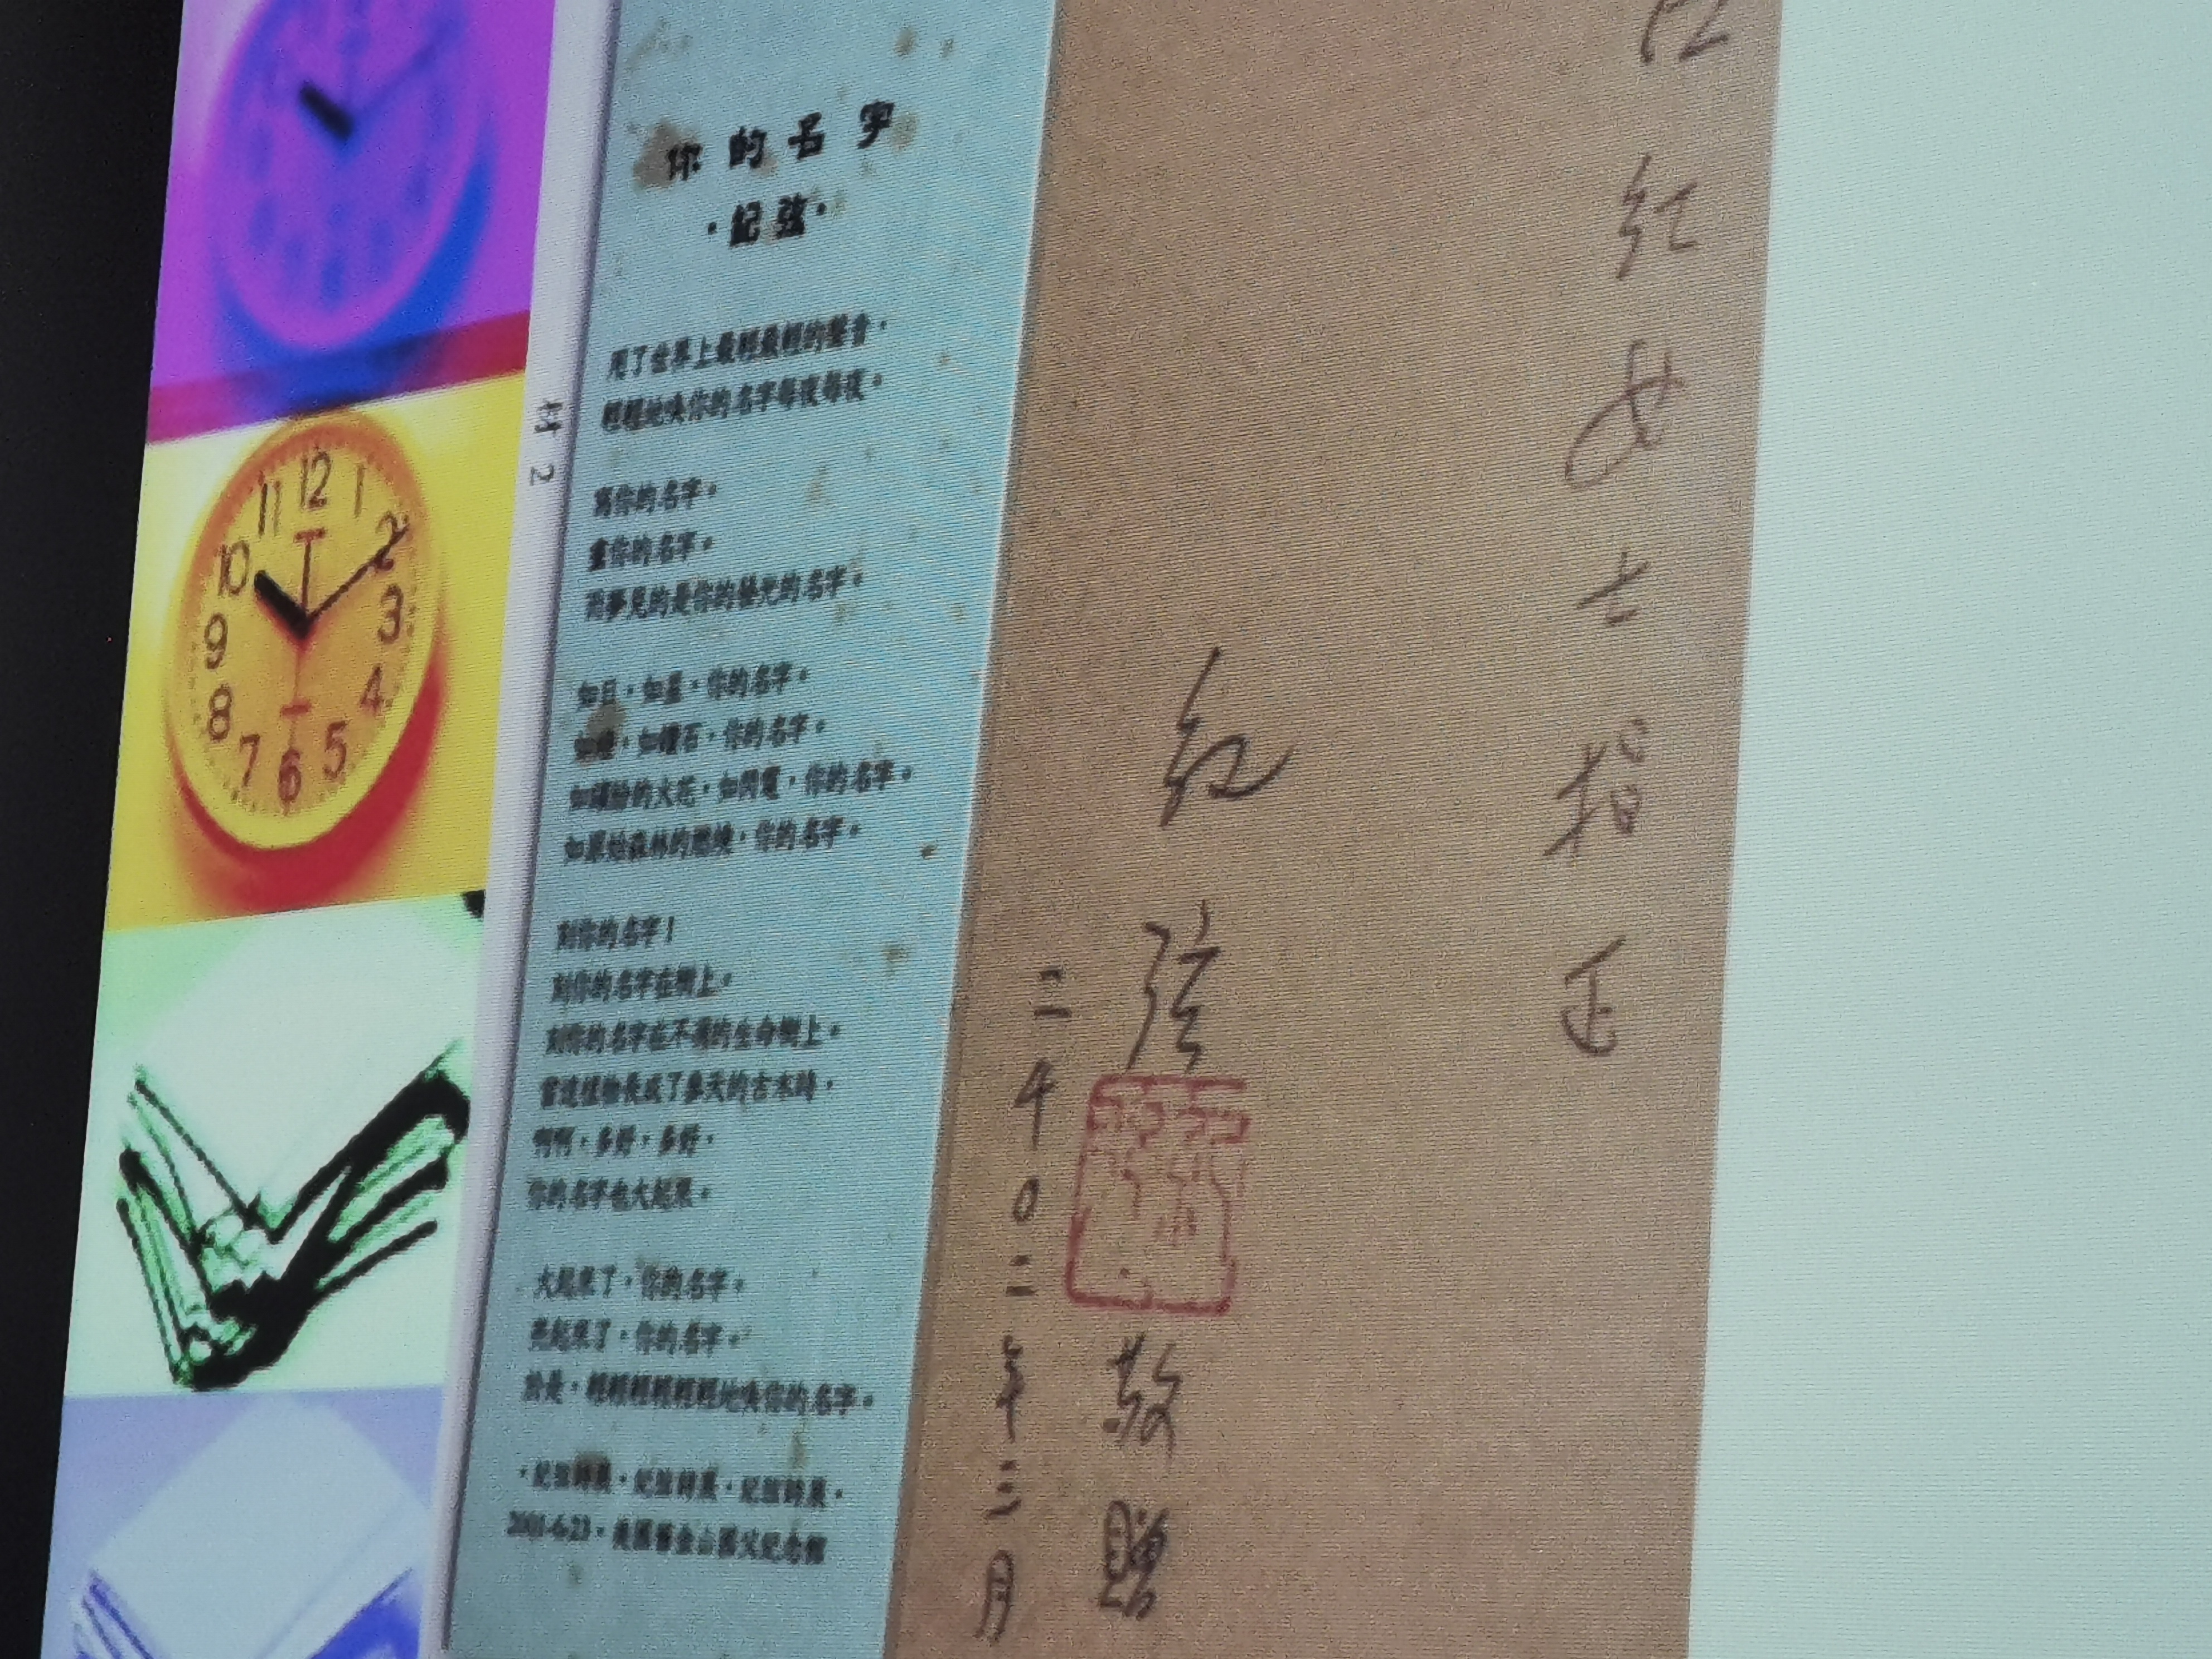 12
11
1
10
2
9
3
8
4
7
5
6
材 2
你的名字
·紀弦·
用了世界上最輕最輕的聲音，
輕輕地喚你的名字每夜每夜。
寫你的名字。
畫你的名字。
而夢見的是你的發光的名字。
如日，如星，你的名字。
如燈，如鑽石，你的名字。
如繽紛的火花，如閃電，你的名字。
如原始森林的燃燒，你的名字。
刻你的名字！
刻你的名字在樹上。
刻你的名字在不凋的生命樹上。
當這植物長成了參天的古木時，
啊啊，多好，多好，
你的名字也大起來。
大起來了，你的名字。
亮起來了，你的名字。
於是，輕輕輕輕輕輕地喚你的名字。
·紀弦詩展·紀弦詩展·紀弦詩展·
2001-6-23，美國舊金山國父紀念館
紅女士指正
紀弦
敬贈
二千0二年三月